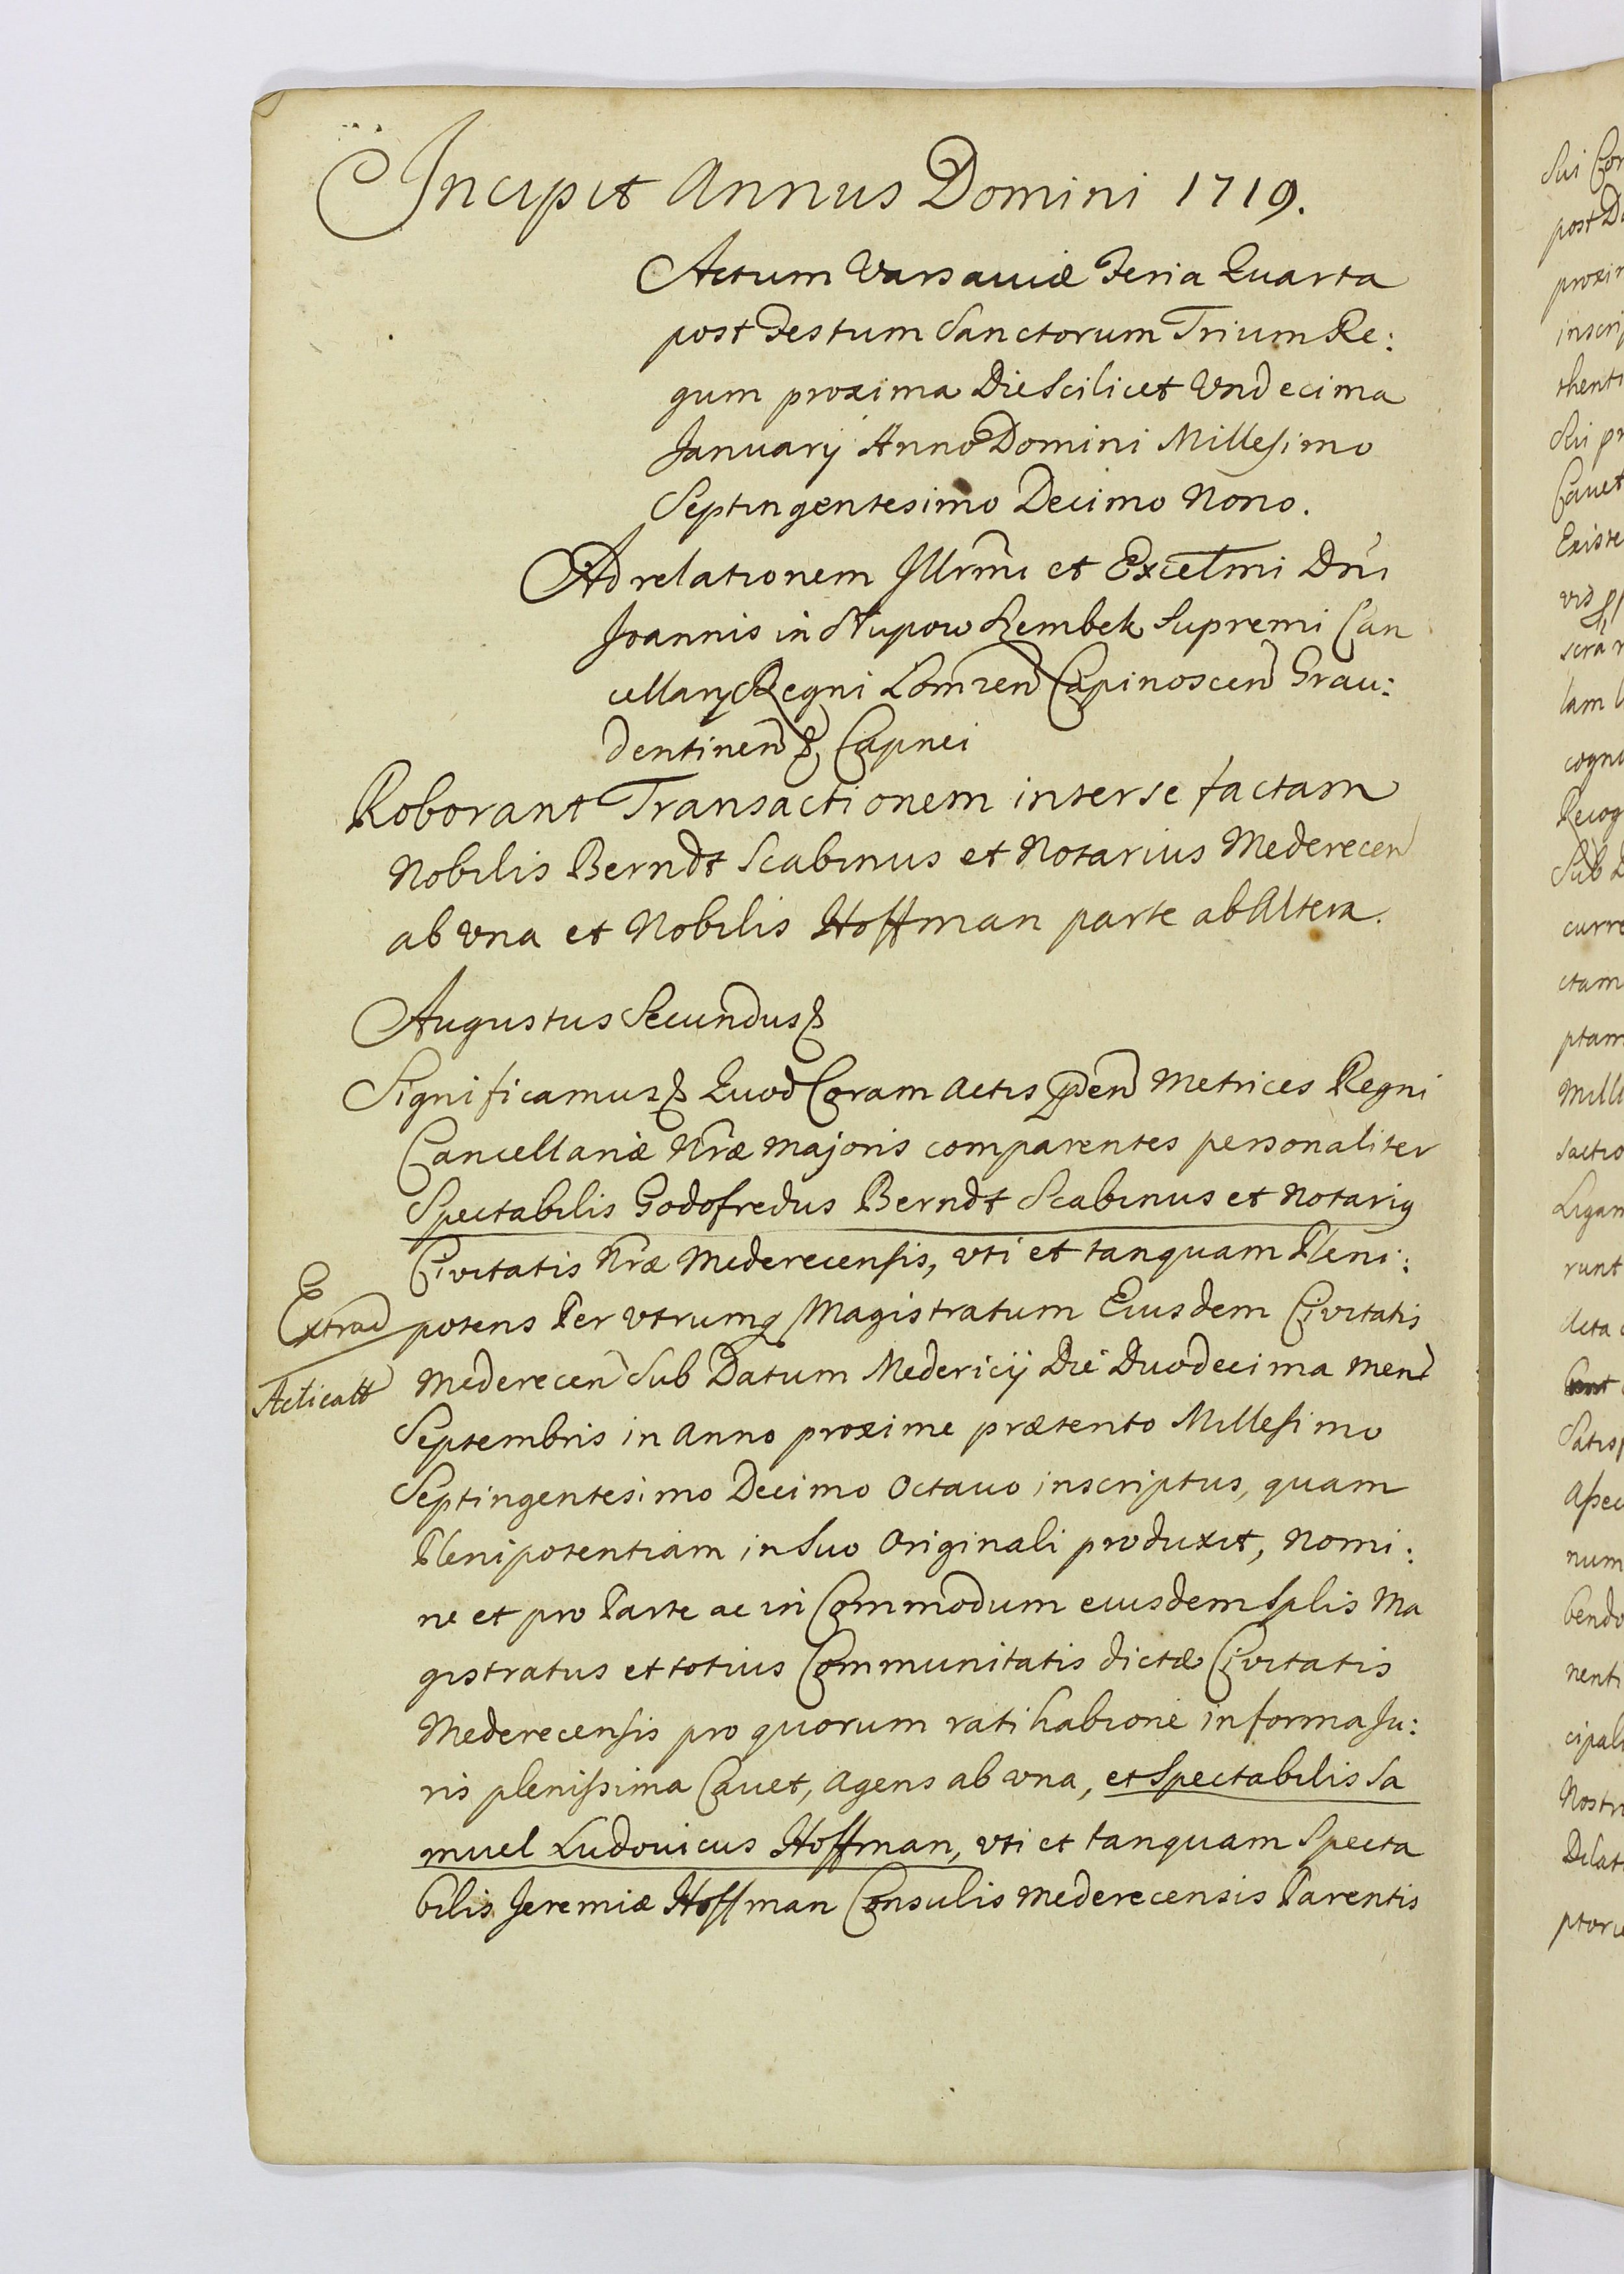 Incipit Annus Domini 1719.
Actum Varsauiæ Feria Quarta
post Festum Sanctorum Trium Re:
gum proxima Die Scilicet Vndecima
Januarij Anno Domini Millesimo
Septingentesimo Decimo Nono.
Ad relationem Illrmi et Excelmi Dni
Joannis in Słupow Szembek Supremi Can
cellarij Regni Lomzen Capinoscen Grau:
dentinen & Capnei
Roborant Transactionem inter se factam
Nobilis Berndt Scabinus et Notarius Mederecen
ab vna et Nobilis Hoffman parte ab Altera.
Augustus Secundus &
Significamus & Quod Coram Actis pñ Metrices Regni
Cancellariæ Nræ Majoris comparentes personaliter
Spectabilis Godofredus Berndt Scabinus et Notarig
Civitatis Nræ Mederecensis, vti et tanquam Pleni:
Extrad
potens Per Vtrumq Magistratum Eiusdem Civitatis
Acticatt
Mederecen Sub Datum Medericij Die Duodecima Mens
Septembris in Anno proxime prætento Millesimo
Septingentesimo Decimo Octauo inscriptus, quam
Plenipotentiam in Suo Originali produxit, Nomi:
ne et pro Parte ac in Commodum eiusdem Splis Ma
gistratus et totius Communitatis dictæ Civitatis
Mederecensis pro quorum ratihabione in forma Ju:
ris plenissima Cauet, Agens ab vna, et Spectabilis Sa
muel Ludouicus Hoffman, vti et tanquam Specta
bilis Jeremiæ Hoffman Consulis Mederecensis Parentis